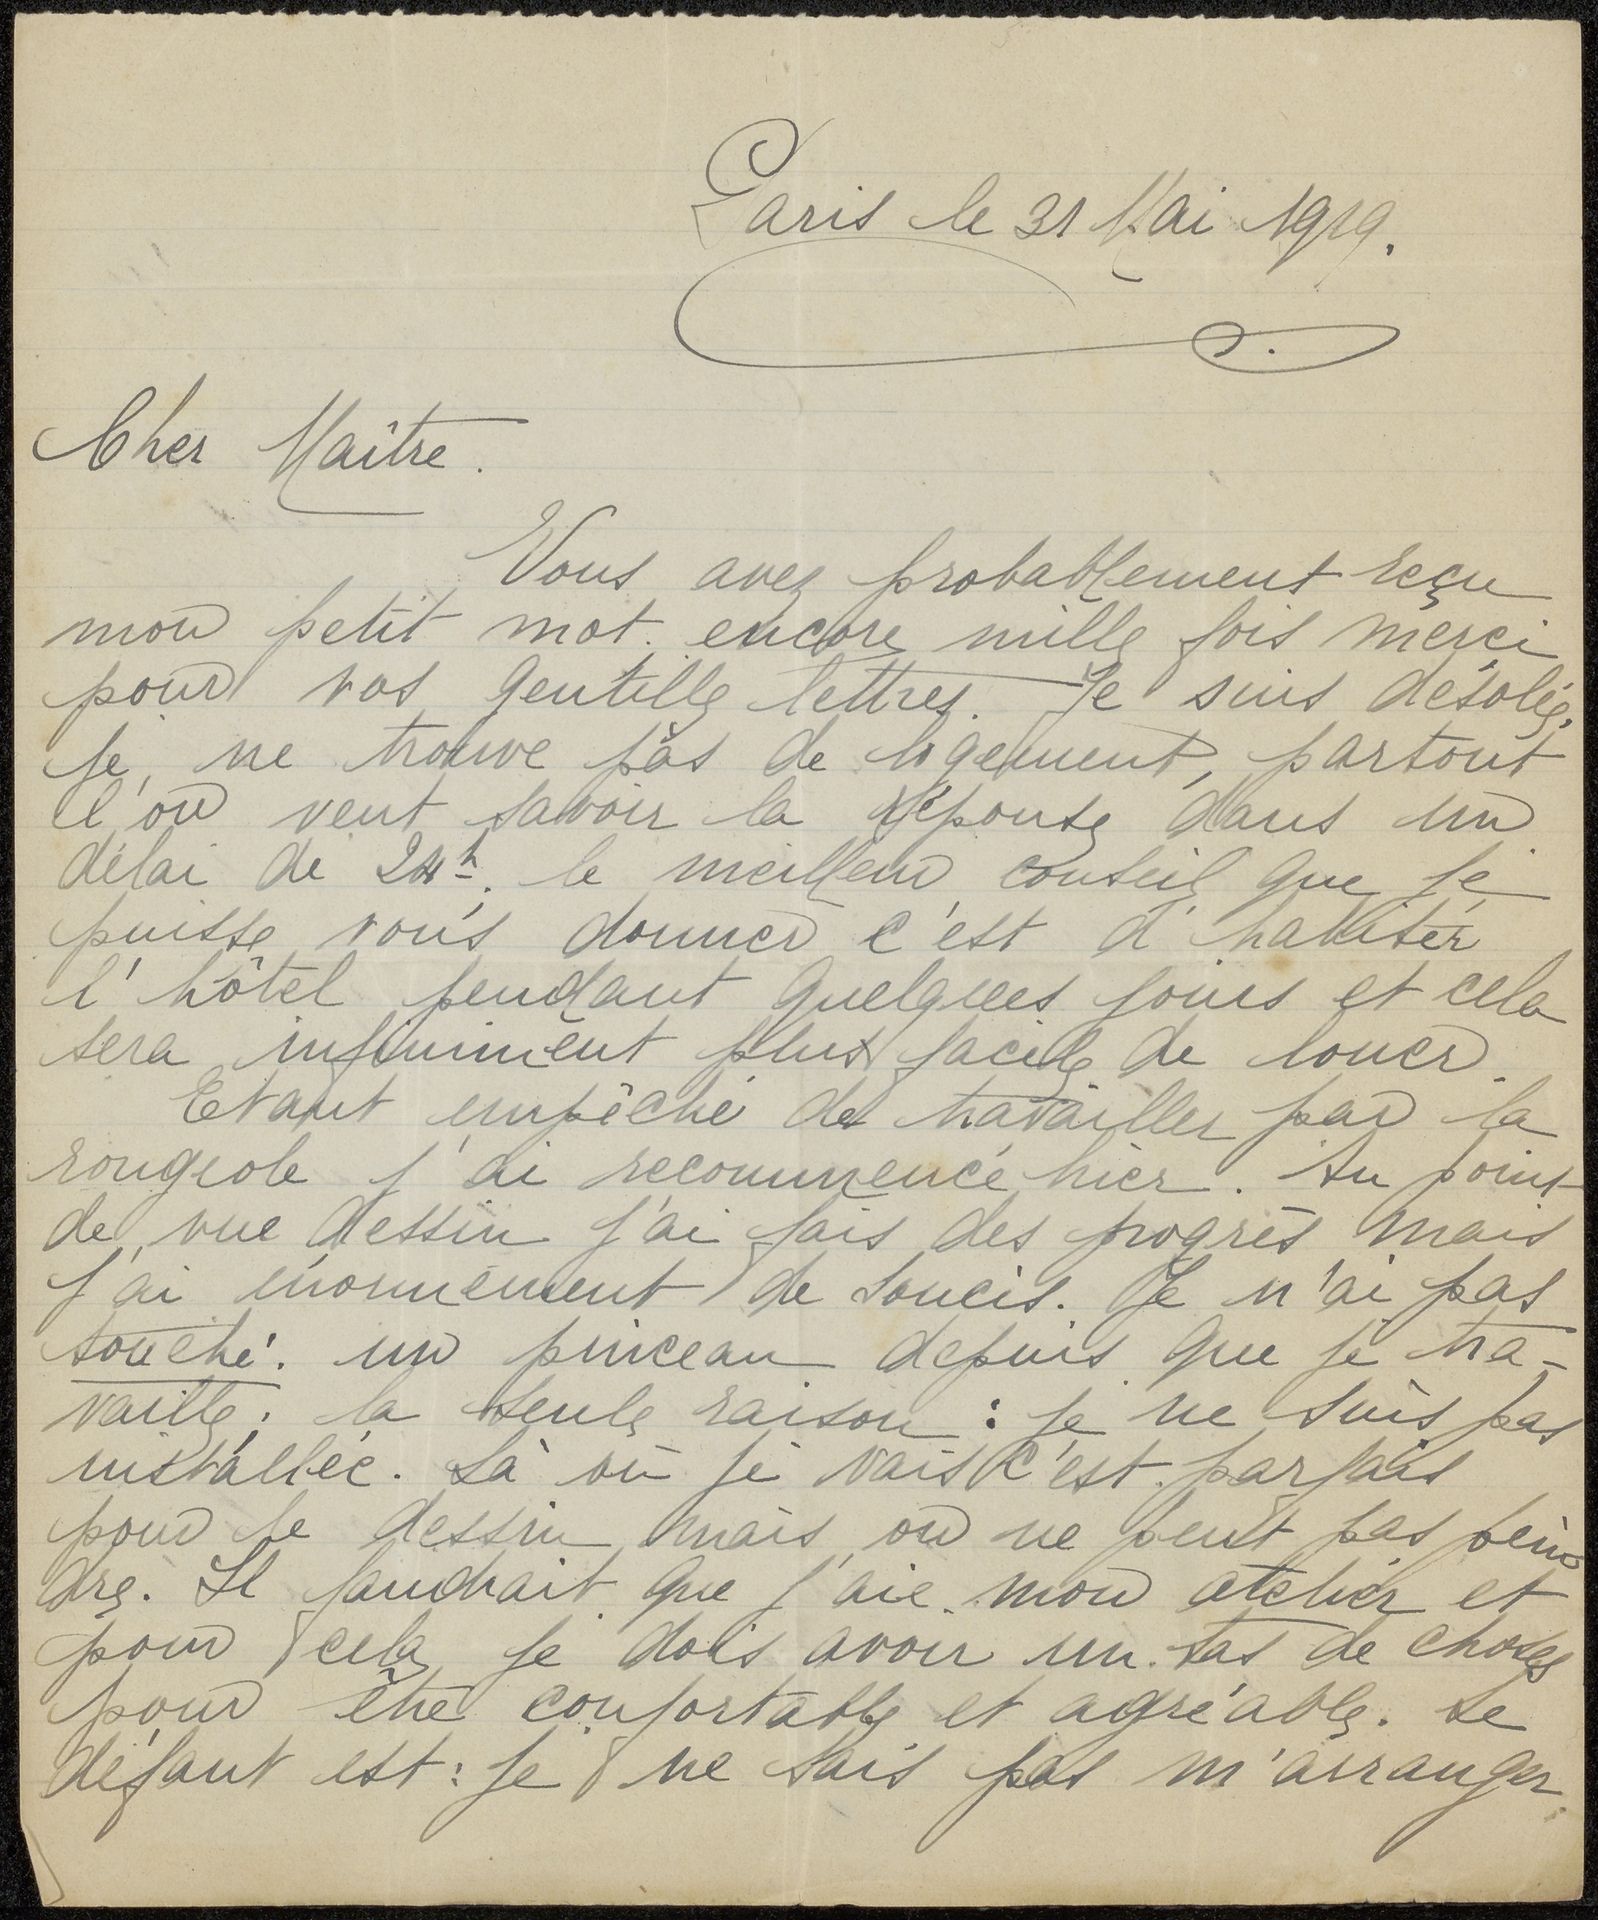 Paris le 31 Mai 1919.
Cher Maître.
Vous avez probablement reçu
mon petit mot. encore mille fois merci
pour vos gentille lettres. Je suis désolée,
je ne trouve pas de logement, partout
l'on veut savoir la réponse dans un
délai de 24h. le meilleur conseil que je
puisse vous donner c'est d'habiter
l'hôtel pendant quelques jours et cela
sera infiniment plus facile de louer.
Etant empêché de travailler par la
rougeole j'ai recommencé hier. Au point
de vue dessin j'ai fais des progrès mais
j'ai énormement de soucis. Je n'ai pas
touché un pinceau depuis que je tra-
vaille; la seule raison : je ne suis pas
installée. Là où je vais c'est parfais
pour le dessin mais on ne peut pas pein
dre. Il faudrait que j'aie mon atelier et
pour cela je dois avoir un tas de choses
pour être confortable et agréable. Le
défaut est : je ne sais pas m'arranger.